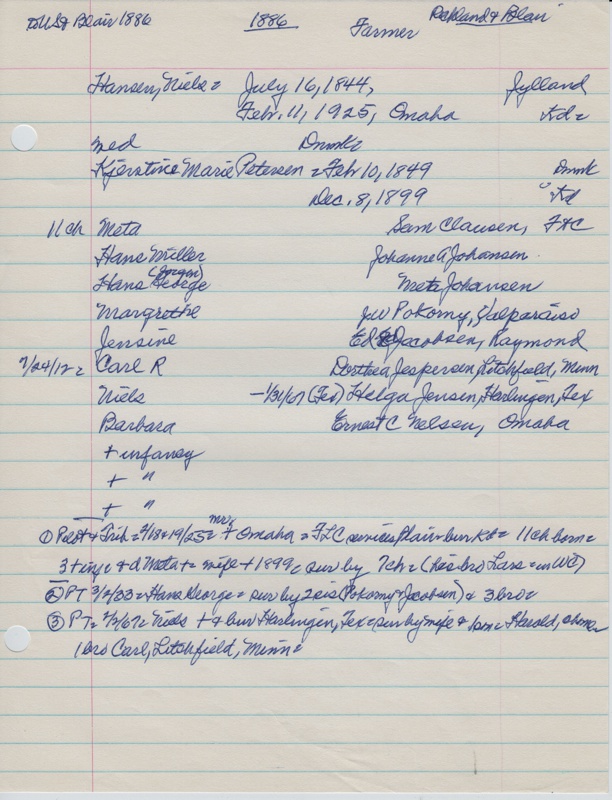 to US & Blair 1886 1886 Farmer & Blair
Hansen, Niels = July 16, 1844, Jylland
Febr. 11, 1925, Omaha Kd =
med Dnmk
Kjerstine Marie Petersen = Feb 10, 1849 Dnmk
Dec. 8, 1899 " Kd
11 ch Meta Sam Clausen,
Hans Miller Johanne A Johansen
(Jorgen)
Hans George Meta Johansen
Margrethe JW Pokorny, Valparaiso
Jensine Ed Jacobsen, Raymond
7/24/12 = Carl R Dorthea Jespersen, Litchfield, Minn
Niels -1/31/67 (Tex) Helga Jensen, Harlingen, Tex
Barbara Ernest C Nelsen, Omaha
+ infancy
+ "
+ "
① Pilot & Trib = 2/18 & 19/25 = + Omaha = services Blair bur Kd = 11 ch born =
3 + inf & d Meta + = wife + 1899 = sur by 7 ch = (his bro Lars = in WC)
② PT 3/2/33 = Hans George = sur by 2 sis (Pokorny & Jacobsen) & 3 bro =
③ PT = 2/2/67 = Niels + & bur Harlingen, Tex = sur by wife & son = Harold,
1 bro Carl, Litchfield, Minn =